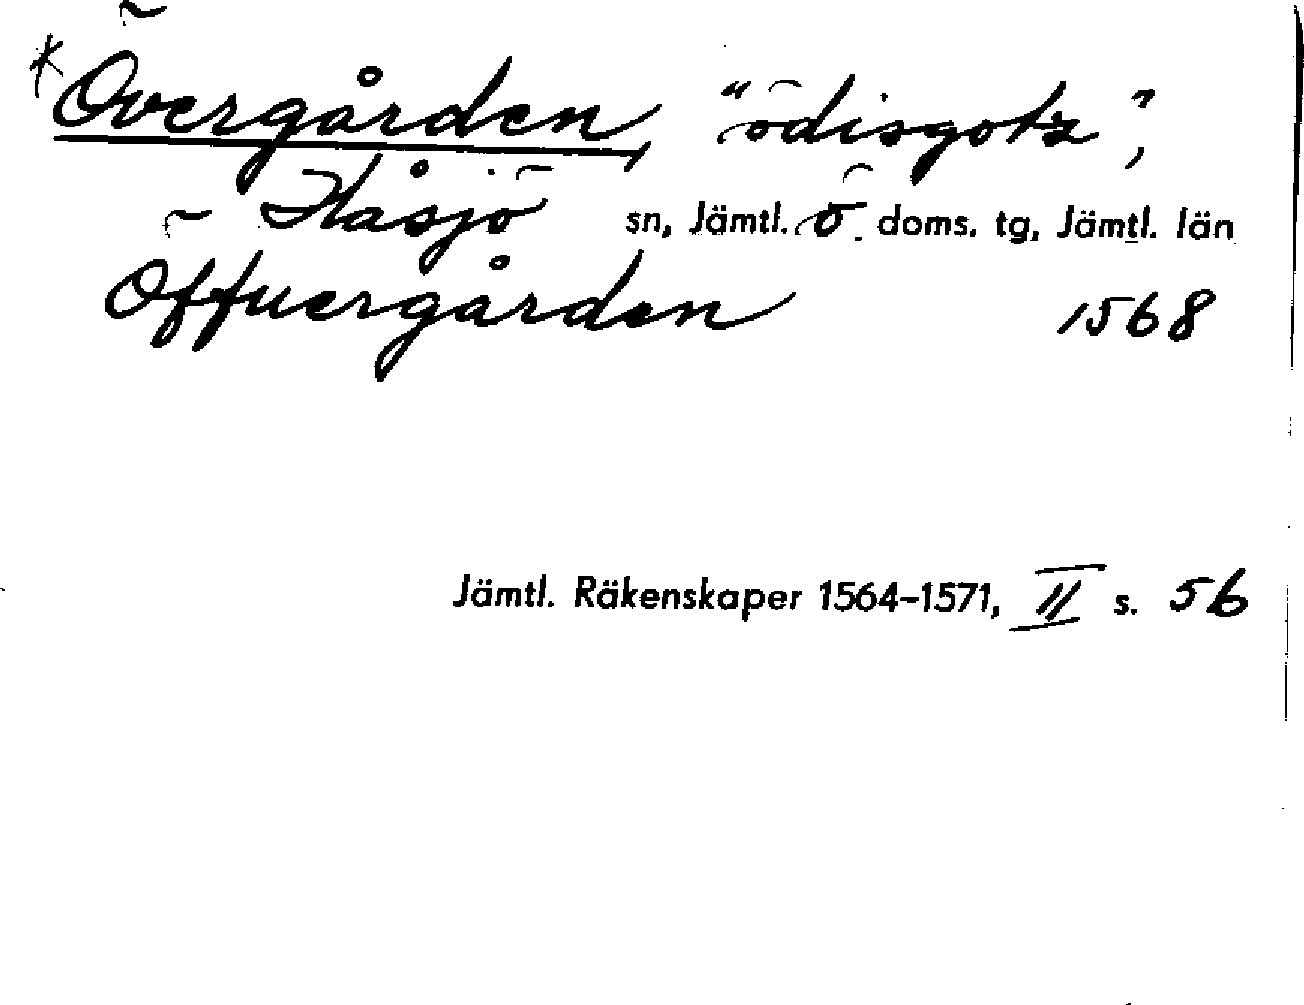 *Övergården, "ödisgotz",
Håsjö sn, Jämtl. ö. doms. tg, Jämtl. län
Öffuergården 1568
Jämtl. Räkenskaper 1564-1571, II s. 56